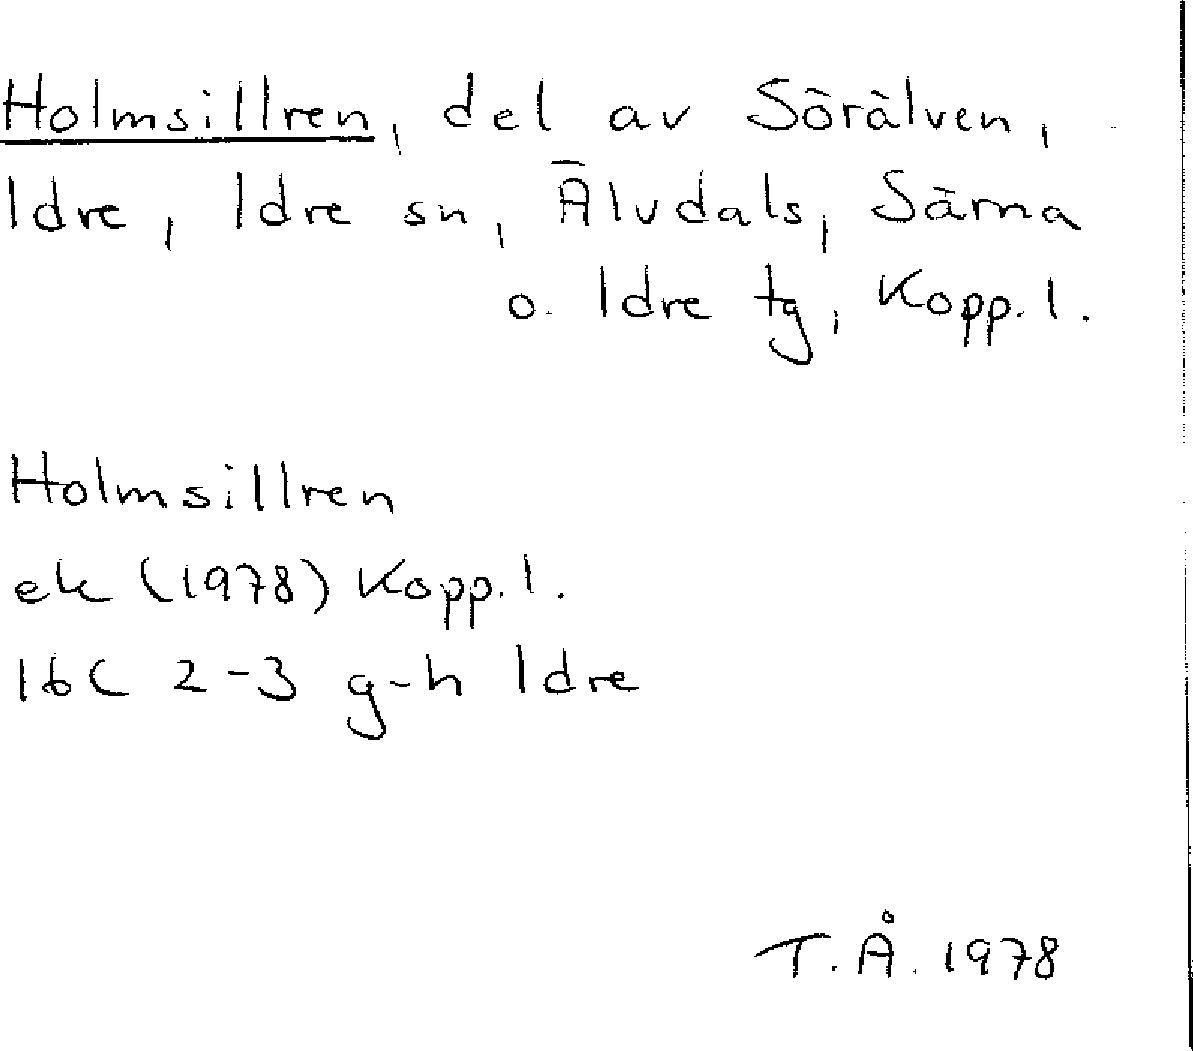 Holmsillren, del av Sörälven,
Idre, Idre sn, Älvdals, Särna
o. Idre tg, Kopp. l.
Holmsillren
ek (1978) Kopp. l.
16C 2-3 g-h Idre
T. Å. 1978